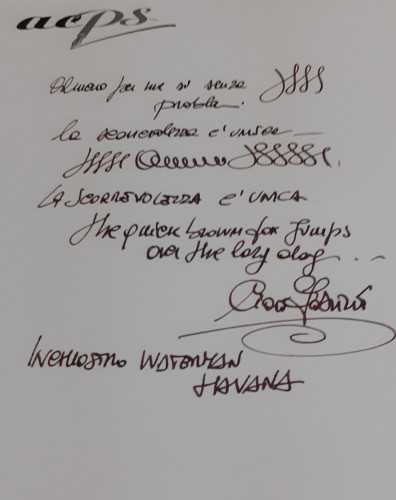 acps
Almeno per me si senza
proble.
la scorrevolezza e' unica
LA SCORREVOLEZZA E' UNICA
The quick brown fox jumps
over the lazy dog...
INCHIOSTRO WATERMAN
HAVANA